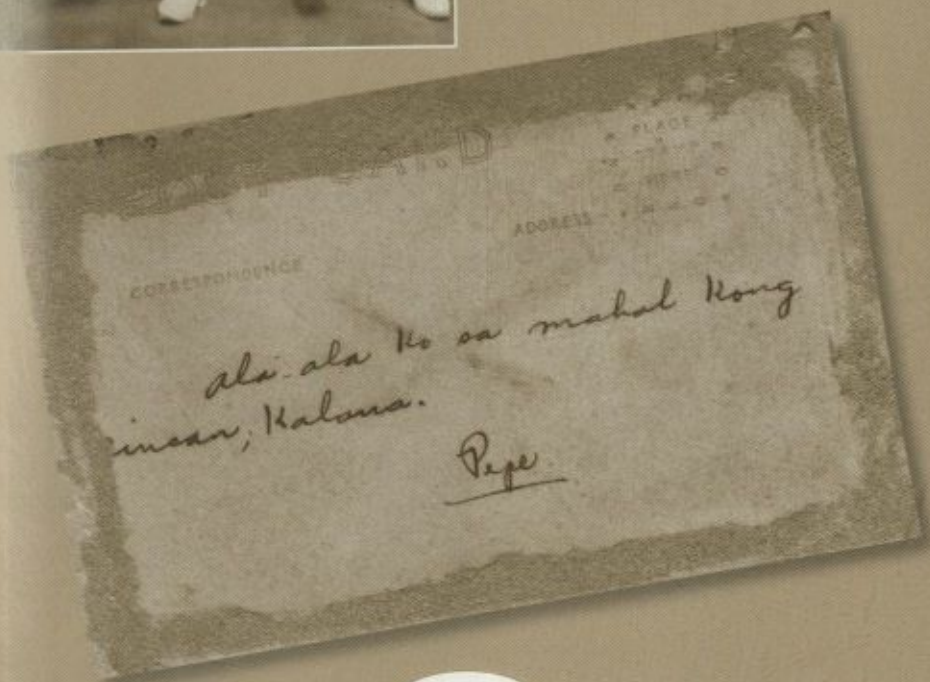 PLACE
ADDRESS
CORRESPONDENCE
ala-ala ko sa mahal kong
insan, Kalana.
Pepe